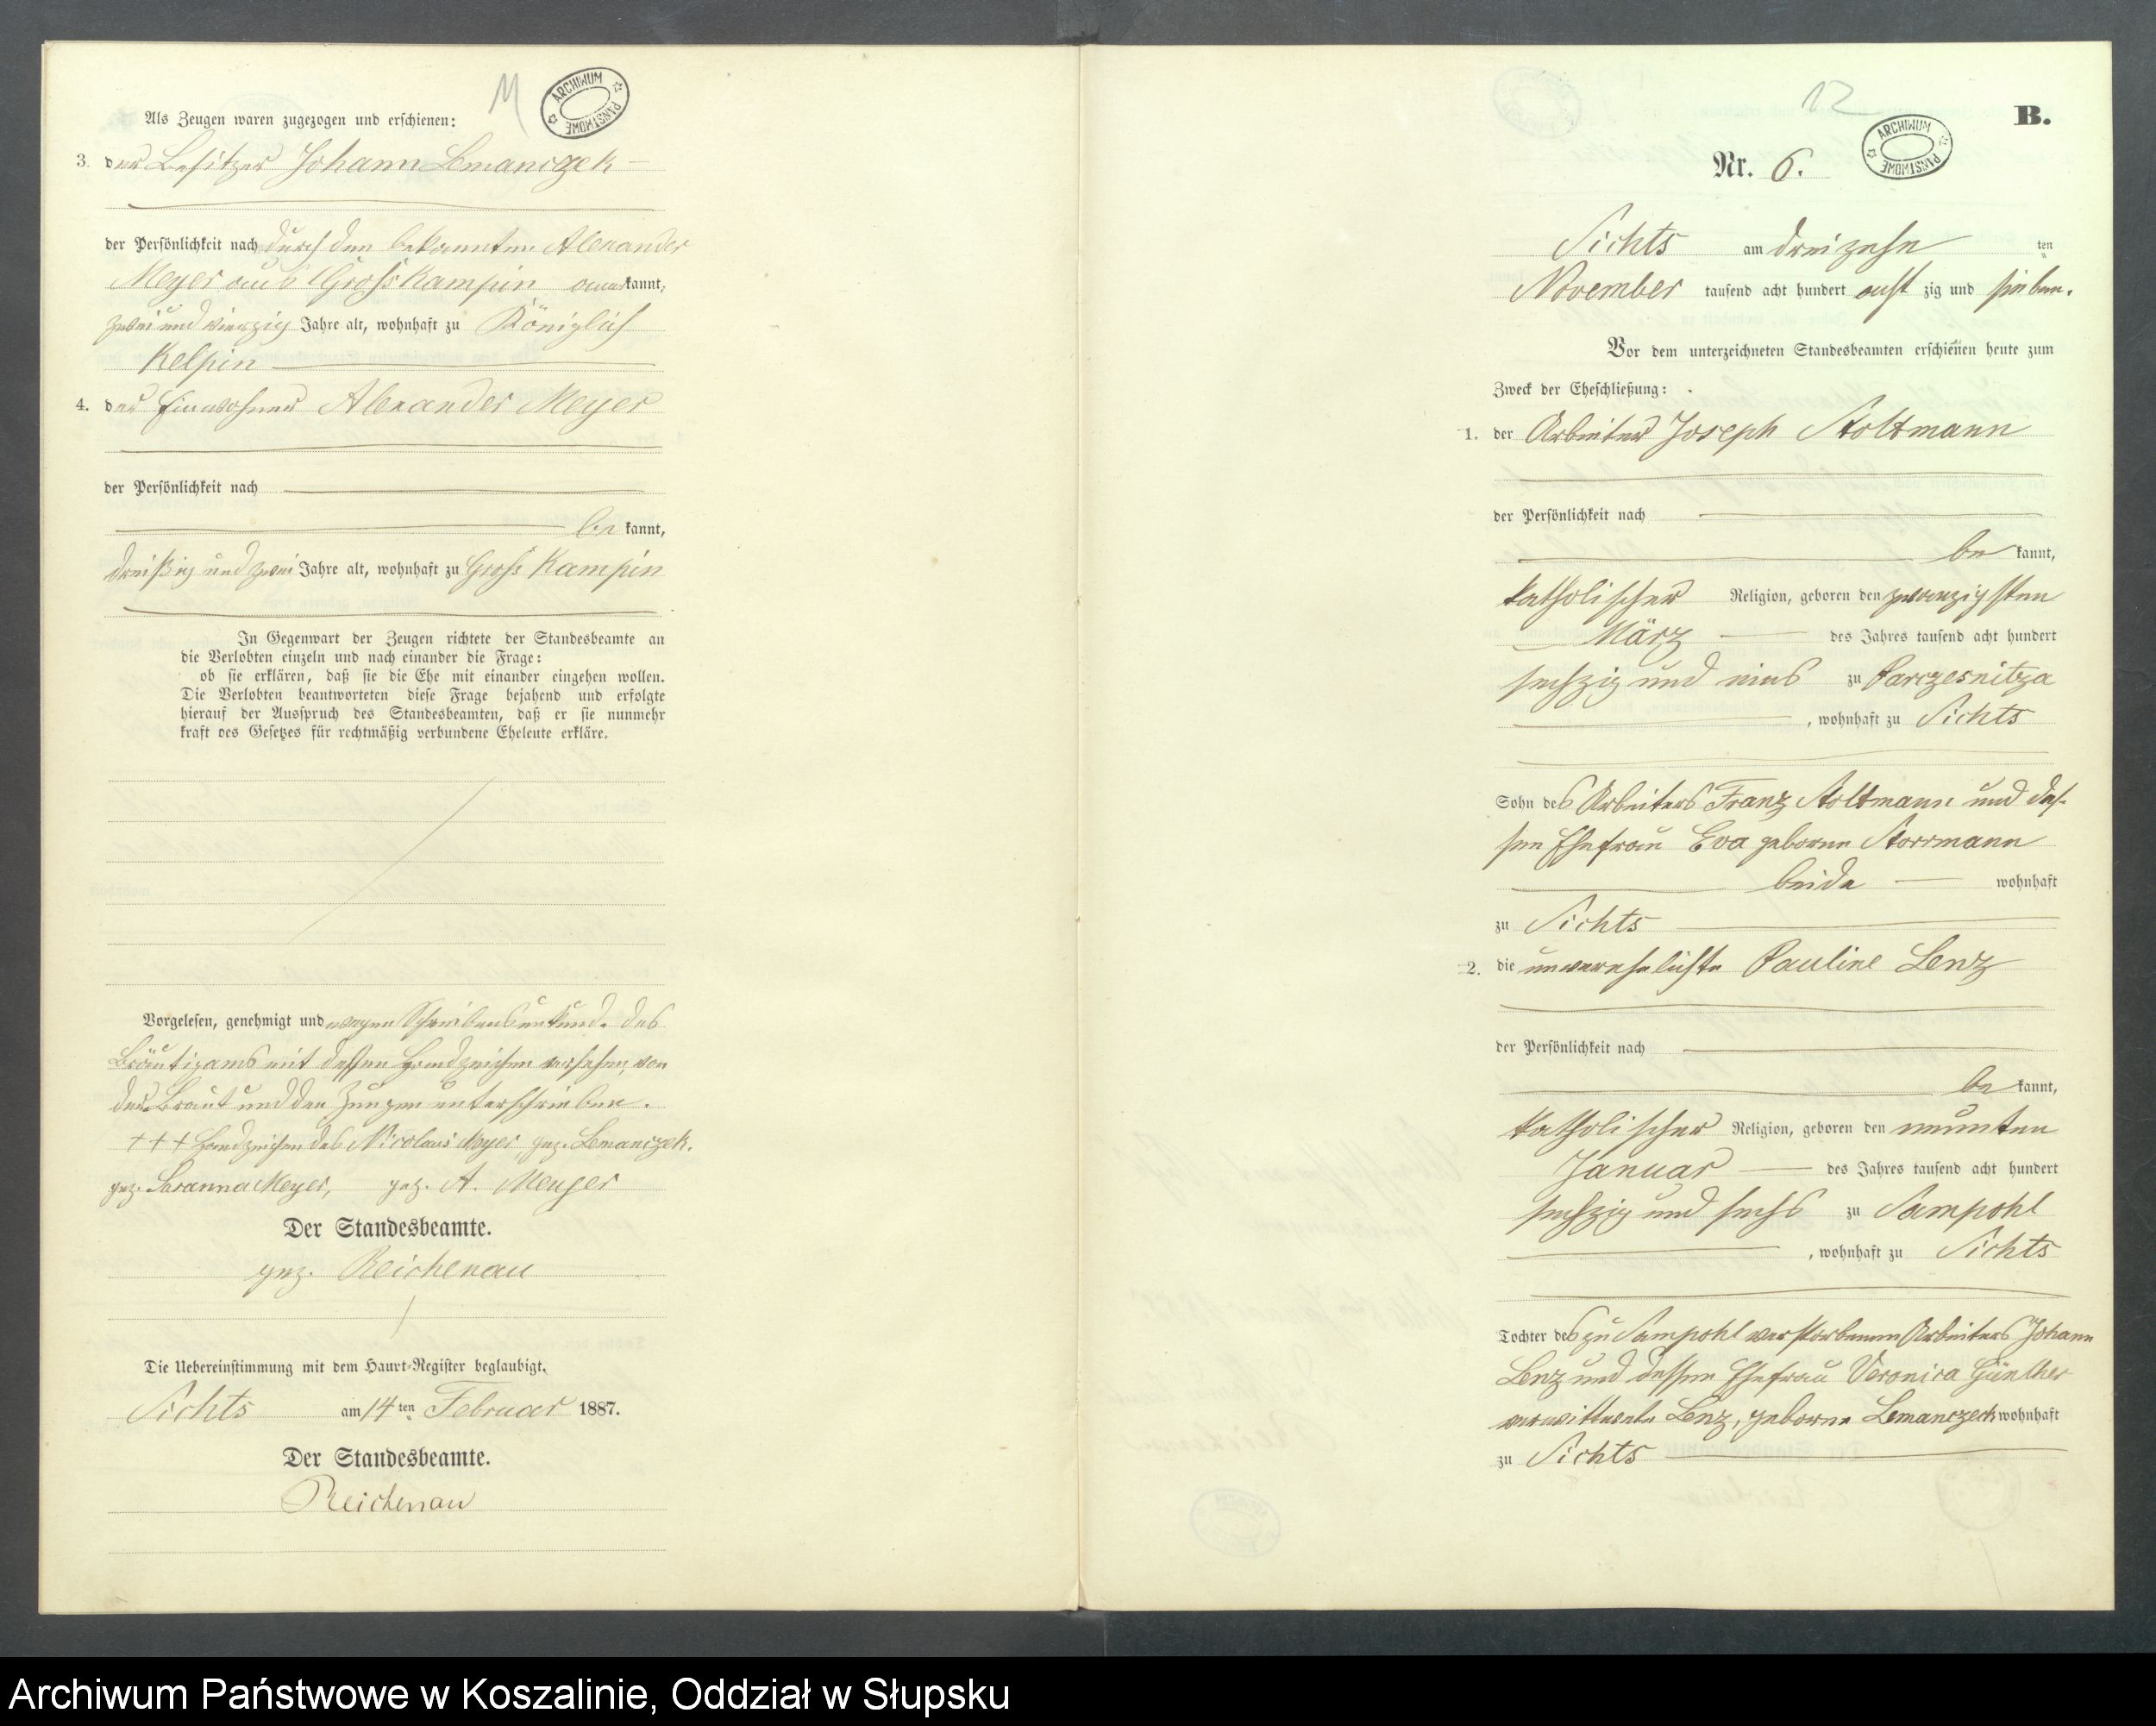 11
ARCHIWUM PAŃSTWOWE
Als Zeugen waren zugezogen und erschienen:
3. der Besitzer Johann Lemanczek
der Persönlichkeit nach durch den bekannten Alexander
Meyer aus Gross Kampin anerkannt,
zwei und vierzig Jahre alt, wohnhaft zu Königlich
Kelpin
4. der Einwohner Alexander Meyer
der Persönlichkeit nach
be kannt,
dreißig und zwei Jahre alt, wohnhaft zu Gross Kampin
In Gegenwart der Zeugen richtete der Standesbeamte an
die Verlobten einzeln und nach einander die Frage:
ob sie erklären, daß sie die Ehe mit einander eingehen wollen.
Die Verlobten beantworteten diese Frage bejahend und erfolgte
hierauf der Ausspruch des Standesbeamten, daß er sie nunmehr
kraft des Gesetzes für rechtmäßig verbundene Eheleute erkläre.
Vorgelesen, genehmigt und wegen Schreibensunkunde des
Bräutigams mit dessen Handzeichen versehen, von
der Braut und den Zeugen unterschrieben.
+++ Handzeichen des Nicolaus Meyer, gez. Lemanczek.
gez. Meyer, gez. A. Meyer
Der Standesbeamte.
gez. Reichenau
Die Uebereinstimmung mit dem Haupt-Register beglaubigt.
Sichts am 14 ten Februar 1887.
Der Standesbeamte.
Reichenau
12
B.
ARCHIWUM PAŃSTWOWE
Nr. 6.
Sichts am dreizehn ten
November tausend acht hundert acht zig und sieben.
Vor dem unterzeichneten Standesbeamten erschienen heute zum
Zweck der Eheschließung:
1. der Arbeiter Joseph Stoltmann
der Persönlichkeit nach
be kannt,
katholischer Religion, geboren den zwanzigsten
März des Jahres tausend acht hundert
sechzig und eins zu Parczesnitza
, wohnhaft zu Sichts
Sohn des Arbeiters Franz Stoltmann und des-
sen Ehefrau Eva geborene Storrmann
beide wohnhaft
zu Sichts
2. die unverehelichte Pauline Lenz
der Persönlichkeit nach
be kannt,
katholischer Religion, geboren den neunten
Januar des Jahres tausend acht hundert
sechzig und sechs zu Sampohl
, wohnhaft zu Sichts
Tochter des zu Sampohl verstorbenen Arbeiters Johann
Lenz und dessen Ehefrau Veronica Günther
verwittwete Lenz, geborene Lemanczeck wohnhaft
zu Sichts
Archiwum Państwowe w Koszalinie, Oddział w Słupsku